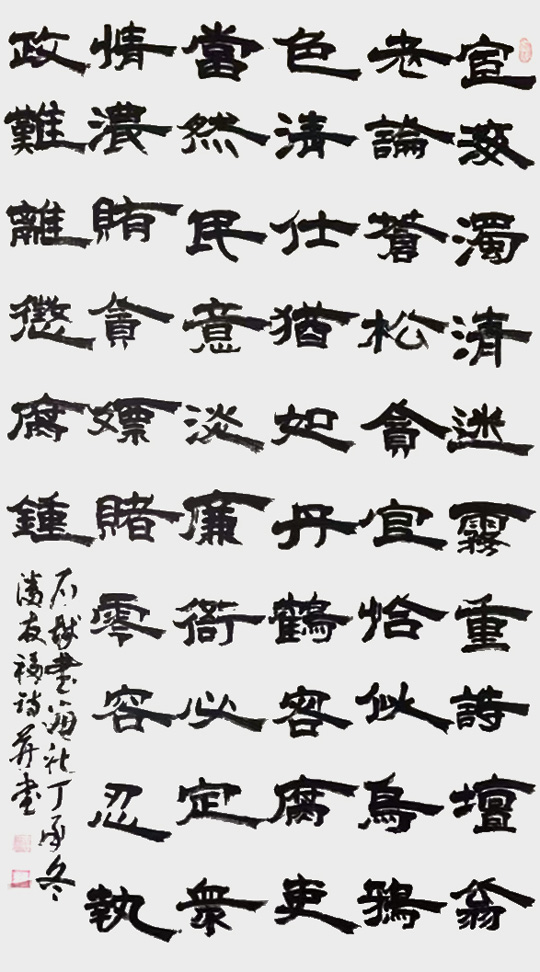 宦海濁清迷霧重詩壇翁
老論蒼松貪官恰似烏鴉
色清仕猶如丹鶴容腐吏
當然民意淡廉衙必定衆
情濃賄貪嫖賭零容忍執
政難離懲腐鍾
書海社丁冬
友福詩并書